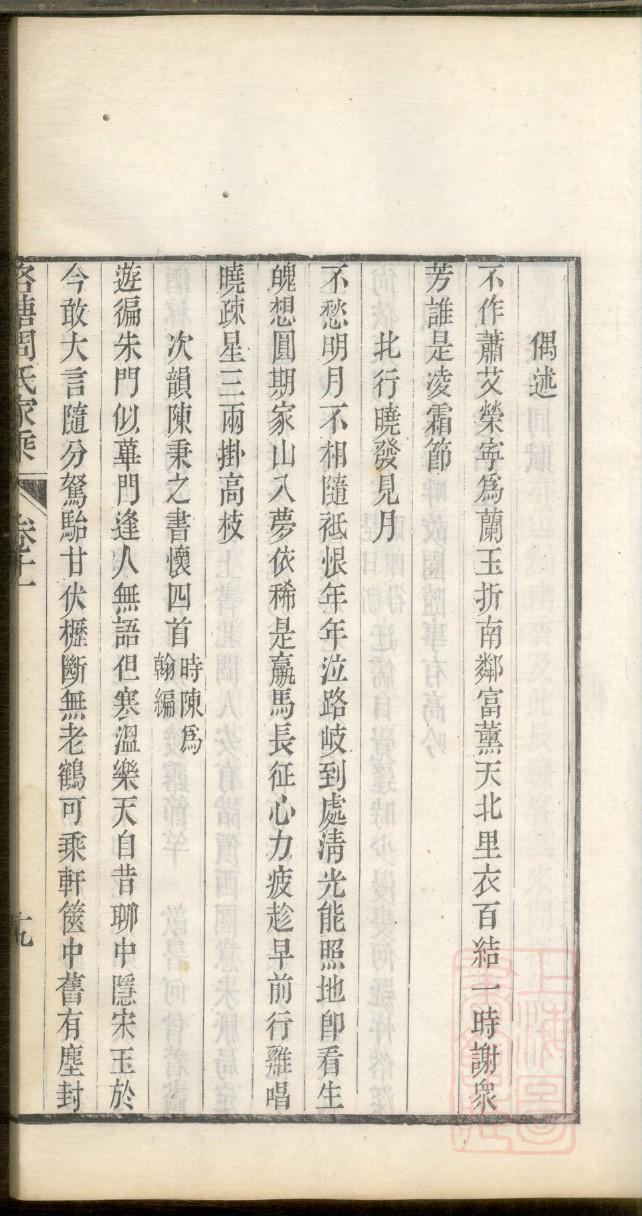 偶述
不作蕭艾榮寧為蘭玉折南鄰富薰天北里衣百結一時謝衆
芳誰是凌霜節
北行曉發見月
不愁明月不相隨祇恨年年泣路岐到處淸光能照地卽看生
魄想圓期家山入夢依稀是羸馬長征心力疲趁早前行雞唱
曉疎星三兩掛高枝
次韻陳秉之書懷四首
時陳爲
翰編
遊徧朱門似蓽門逢人無語但寒溫樂天自昔聊中隱宋玉於
今敢大言隨分駑駘甘伏櫪斷無老鶴可乘軒篋中舊有塵封
周氏家乘
卷十一
十九